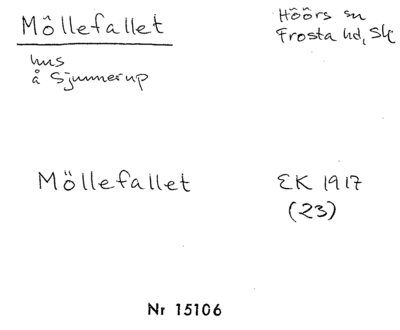 Möllefallet
Höörs sn
Frosta hd, Sk
hus
å Sjunnerup
Möllefallet
EK 1917
(23)
Nr 15106